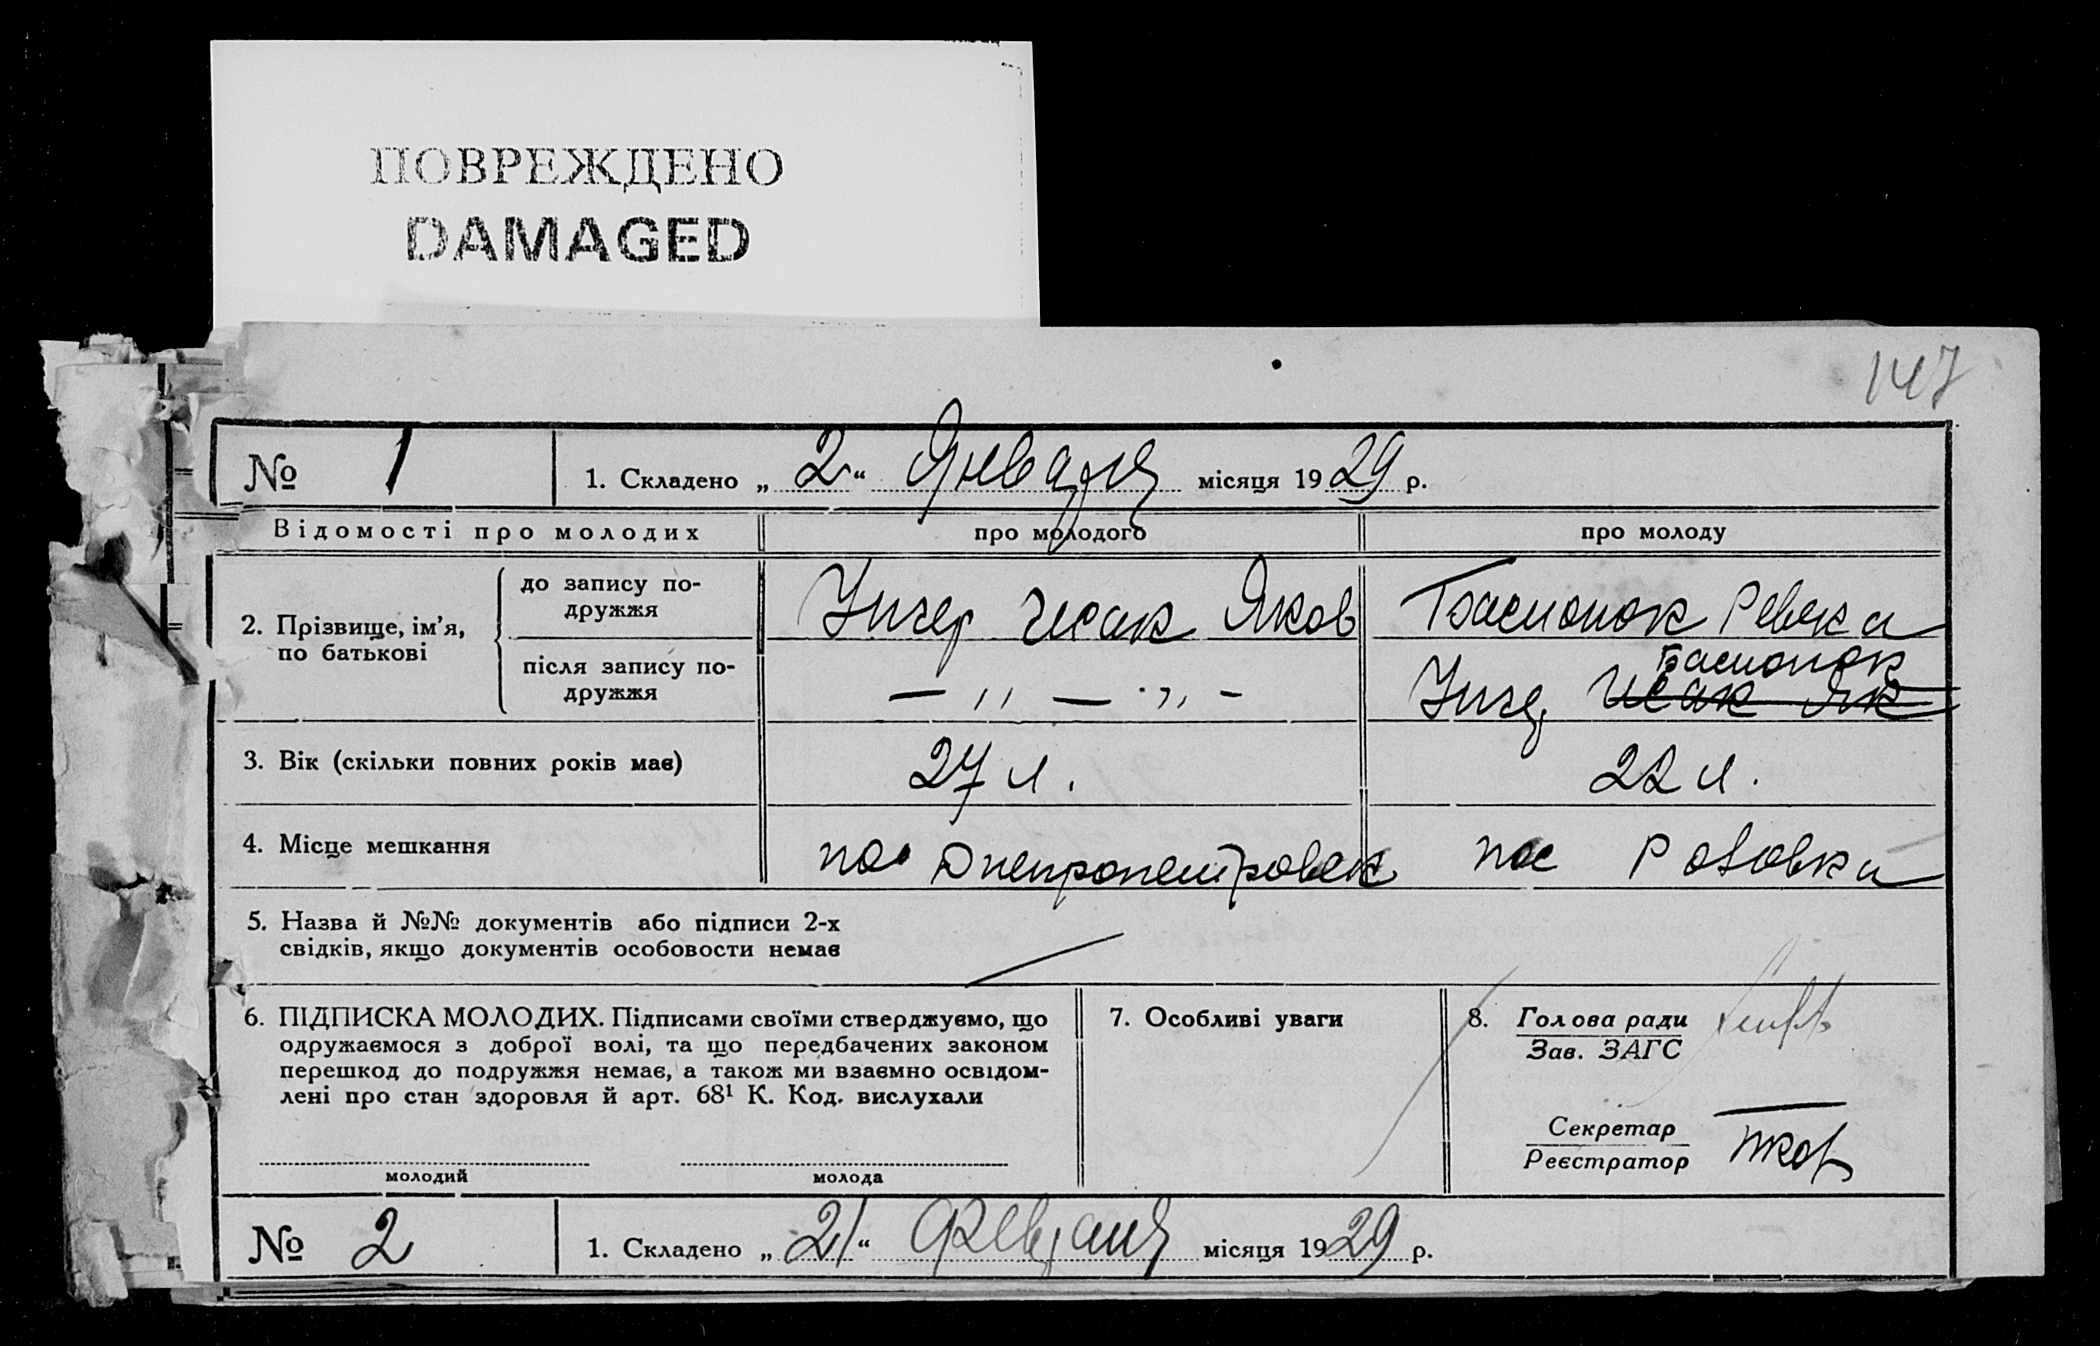 ПОВРЕЖДЕНО
DAMAGED
147
№ 1 1. Складено „ 2 “ Января місяця 1929 р.
Відомості про молодих про молодого про молоду
2. Прізвище, ім’я, по батькові
до запису подружжя Унгер Исак Яков Басионок Ревека
після запису подружжя — „ — „ - Басионок
Унгер Исак Як
3. Вік (скільки повних років має) 27 л. 22 л.
4. Місце мешкання Днепропетровск пос Розовка
5. Назва й №№ документів або підписи 2-х
свідків, якщо документів особовости немає
6. ПІДПИСКА МОЛОДИХ. Підписами своїми стверджуємо, що
одружаємося з доброї волі, та що передбачених законом
перешкод до подружжя немає, а також ми взаємно освідом-
лені про стан здоровля й арт. 68¹ К. Код. вислухали
молодий молода
7. Особливі уваги
8. Голова ради
Зав. ЗАГС
Секретар
Реєстратор
№ 2 1. Складено „ 21 “ Февраля місяця 1929 р.